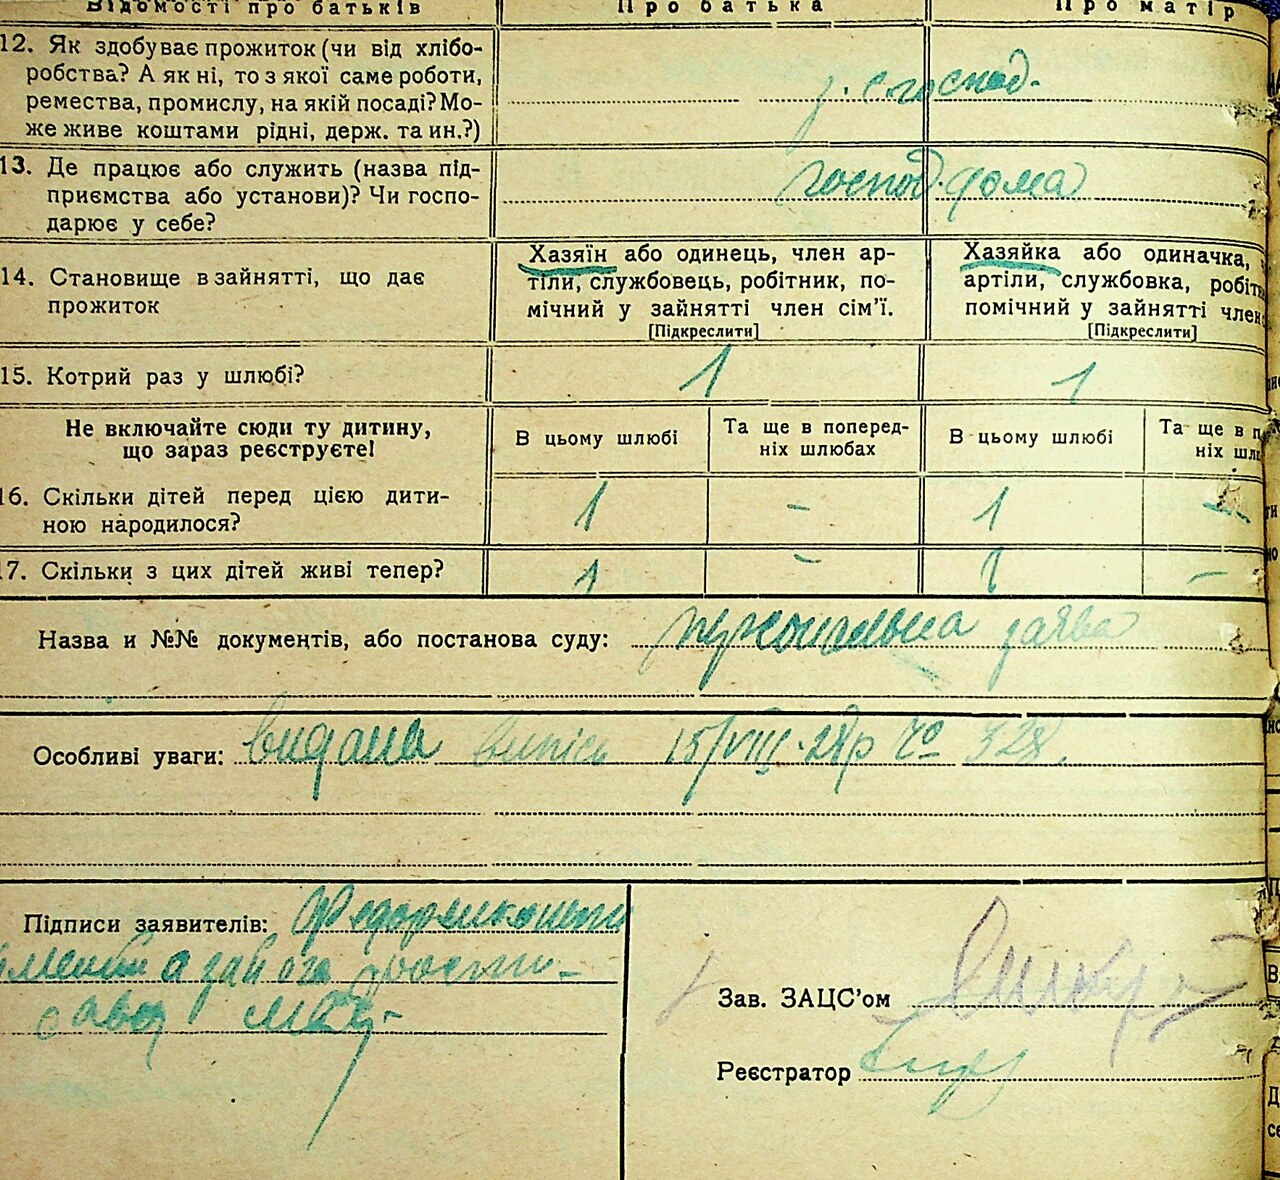 Відомості про батьків Про батька Про матір
12. Як здобуває прожиток (чи від хлібо-
робства? А як ні, то з якої саме роботи,
ремества, промислу, на якій посаді? Мо-
же живе коштами рідні, держ. та ин.?)
з. с господ.
13. Де працює або служить (назва під-
приємства або установи)? Чи госпо-
дарює у себе?
господ. дома
14. Становище в зайнятті, що дає
прожиток
Хазяїн або одинець, член ар-
тіли, службовець, робітник, по-
мічний у зайнятті член сім’ї.
[Підкреслити]
Хазяйка або одиначка,
артіли, службовка, робіт
помічний у зайнятті член
[Підкреслити]
15. Котрий раз у шлюбі? 1 1
Не включайте сюди ту дитину,
що зараз реєструєте!
В цьому шлюбі
Та ще в поперед-
ніх шлюбах
В цьому шлюбі
Та ще в п
ніх шлю
16. Скільки дітей перед цією дити-
ною народилося?
1 - 1 -
17. Скільки з цих дітей живі тепер? 1 - 1 -
Назва и №№ документів, або постанова суду: персональна заява
Особливі уваги: видана випісь 15/VIII-28р чо 328.
Підписи заявителів:
Зав. ЗАЦС’ом
Реєстратор